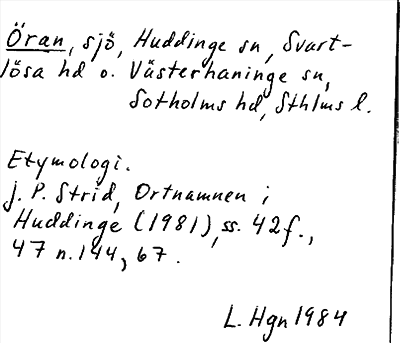 Öran, sjö, Huddinge sn, Svart-
lösa hd o. Västerhaninge sn,
Sotholms hd, Sthlms l.
Etymologi.
J. P. Strid, Ortnamnen i
Huddinge (1981), ss. 42f.,
47 n. 144, 67.
L. Hgn 1984